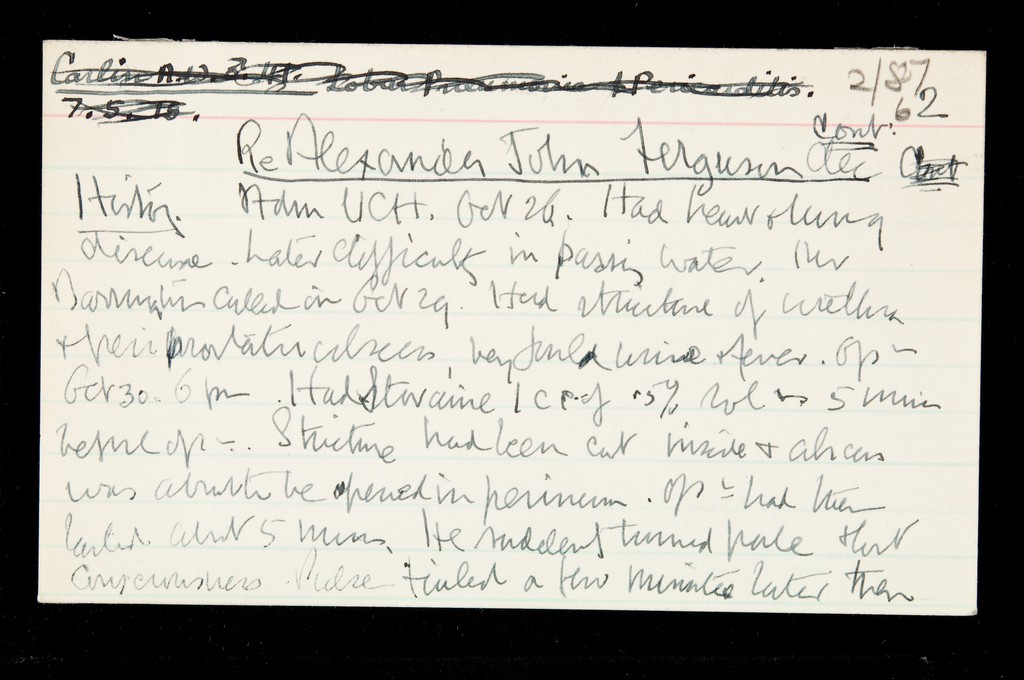 Carlin A. W. Lobar Pneumonia & Pericarditis.
7. 5. 15.
2/827
62
Cont.
Re Alexander John Ferguson dec
History. Adm UCH. Oct 26. Had heart & lung
disease. Later difficulty in passing water. Mr
Barrington called in Oct 29. Had stricture of urethra
& periprostatic abscess, very foul urine & fever. Opn
Oct 30. 6 pm. Had Stovaine 1 cc of .5% soln 5 mins
before opn. Stricture had been cut inside & abscess
was about to be opened in perineum. Opn had then
lasted about 5 mins. He suddenly turned pale & lost
consciousness. Pulse failed a few minutes later then